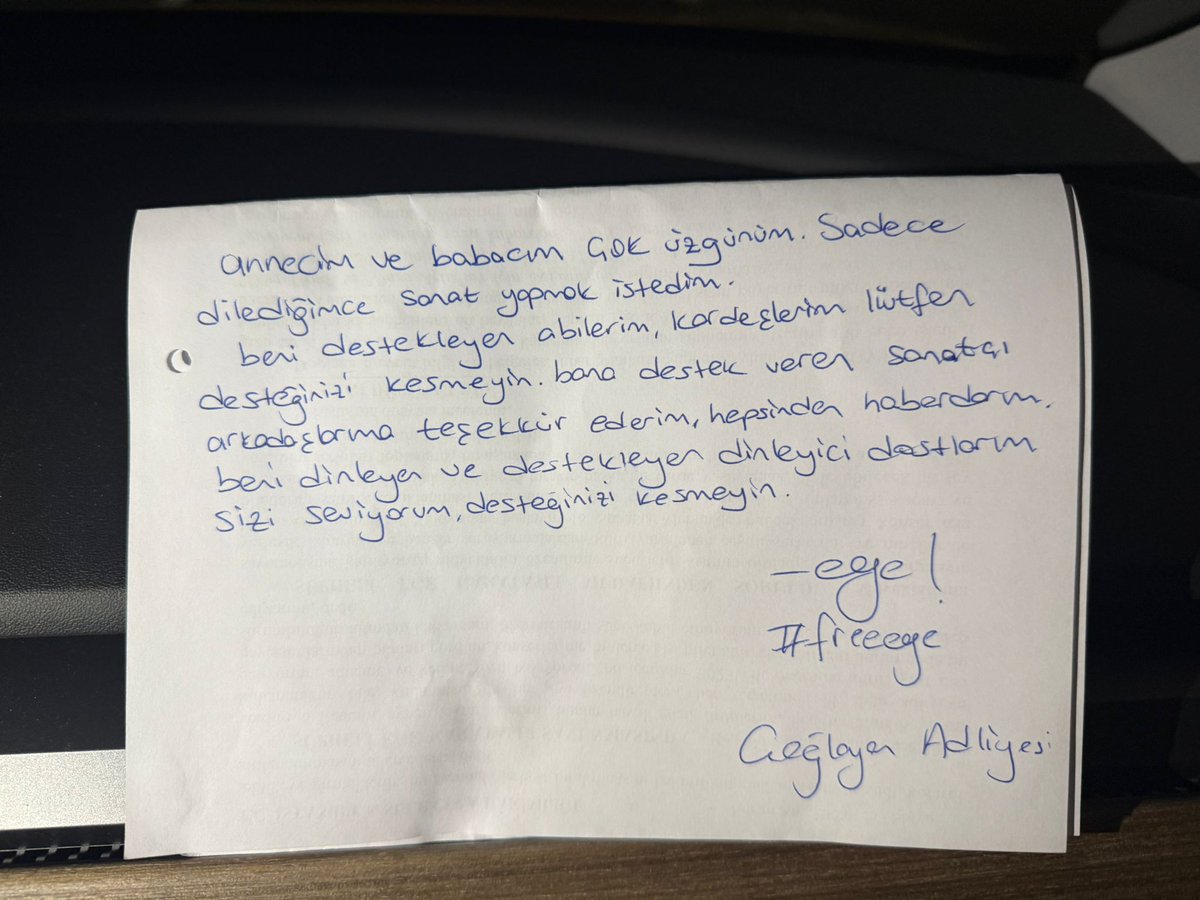 annecim ve babacım çok üzgünüm. Sadece
dilediğimce sanat yapmak istedim.
beni destekleyen abilerim, kardeşlerim lütfen
desteğinizi kesmeyin. bana destek veren sanatçı
arkadaşlarıma teşekkür ederim, hepsinden haberdarım.
beni dinleyen ve destekleyen dinleyici dostlarım
sizi seviyorum, desteğinizi kesmeyin.
—ege!
#freeege
Çağlayan Adliyesi